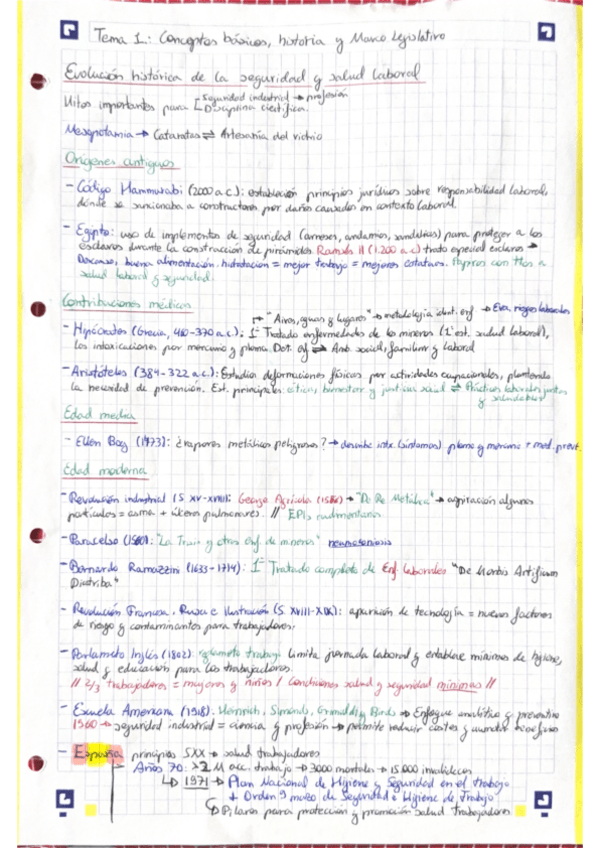 Tema 1.: Conceptos básicos, historia y Marco Legislativo
Evolución histórica de la seguridad y salud laboral
Hitos importantes para [ Seguridad industrial → profesión
Disciplina científica.
Mesopotamia → Cataratas ⇌ Artesanía del vidrio
Orígenes antiguos
- Código Hammurabi (2000 a.c): establecían principios jurídicos sobre responsabilidad laboral,
dónde se sancionaba a constructores por daños causados en contexto laboral.
- Egipto: uso de implementos de seguridad (arneses, andamios, sandalias) para proteger a los
esclavos durante la construcción de pirámides. Ramsés II (1.200 a.c) trato especial esclavos →
Descanso, buena alimentación, hidratación = mejor trabajo = mejores estatuas. Papiros con a
salud laboral y seguridad.
Contribuciones médicas
"Aires, aguas y lugares" → metodología ident. enf → Eva. riesgos laborales
- Hipócrates (Grecia, 460-370 a.c.): 1er Tratado enfermedades de los mineros (1a est. salud laboral),
las intoxicaciones por mercurio y plomo. Det. enf ⇌ Amb. social, familiar y laboral
- Aristóteles (384-322 a.c.): Estudia deformaciones físicas por actividades ocupacionales, planteando
la necesidad de prevención. Est. principales: ética, bienestar y justicia social ⇌ Prácticas laborales justas
y saludables
Edad media
- Ellen Bog (1473): ¿vapores metálicos peligrosos? → describe intx. (síntomas) plomo y mercurio + med. prevt.
Edad moderna
- Revolución industrial (S XV-XVIII): George Agrícola "De Re Metálica" → aspiración algunas
partículas = asma + úlceras pulmonares. // EPIs rudimentarios
- Paracelso "La y otras enf de mineros" neumoconiosis
- Bernardo Ramazzini (1633-1714): 1er Tratado completo de Enf laborales "De Morbis Artificum
Diatriba"
- Revolución Francesa, Rusa e Ilustración (S. XVIII-XIX): aparición de tecnología = nuevos factores
de riesgo y contaminantes para trabajadores.
- Parlameto Inglés (1802): reglameto trabajo limita jornada laboral y establece mínimos de higiene,
salud y educación para los trabajadores.
// 2/3 trabajadores = mujeres y niños / Condiciones salud y seguridad mínimas //
- Escuela Americana (1918): Heinrich, Simonds, Grimaldi y Birds → Enfoque analítico y preventivo
1960 → seguridad industrial = ciencia y profesión → permite reducir costes y aumentar beneficios
- España principios SXX → salud trabajadores
Años 70: >2 M acc. trabajo → 3000 mortales → 15.000 invalideces
↳ 1971 → Plan Nacional de Higiene y Seguridad en el trabajo
+ Orden 9 marzo de Seguridad e Higiene de Trabajo
↳ Pilares para protección y promoción salud trabajadores